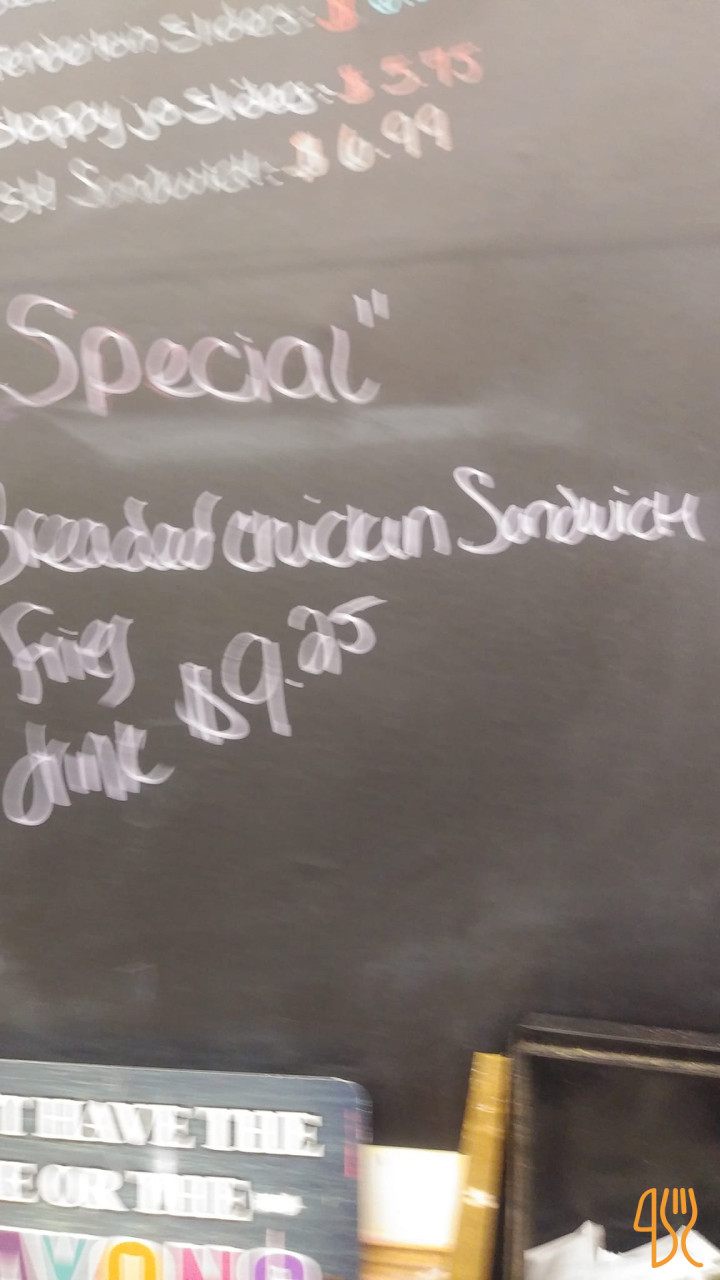 Sliders: $
Sloppy jo Sliders: $5.95
Sandwich: $6.99
Special"
Breaded chicken Sandwich
Fries
drink $9.25
T HAVE THE
E OR THE